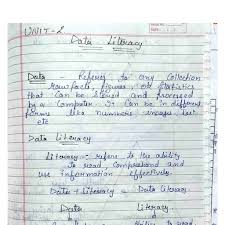 UNIT-2
Data Literacy
Data - Refers to any Collection
raw facts, figures or statistics
that can be stored and processed
by a Computer. It can be in different
forms like numbers, images text
etc
Data Literacy
Literacy - refers to the ability
to read, Comprehend and
use information effectively.
Data + Literacy = Data literacy
Data Literacy
Ability to read